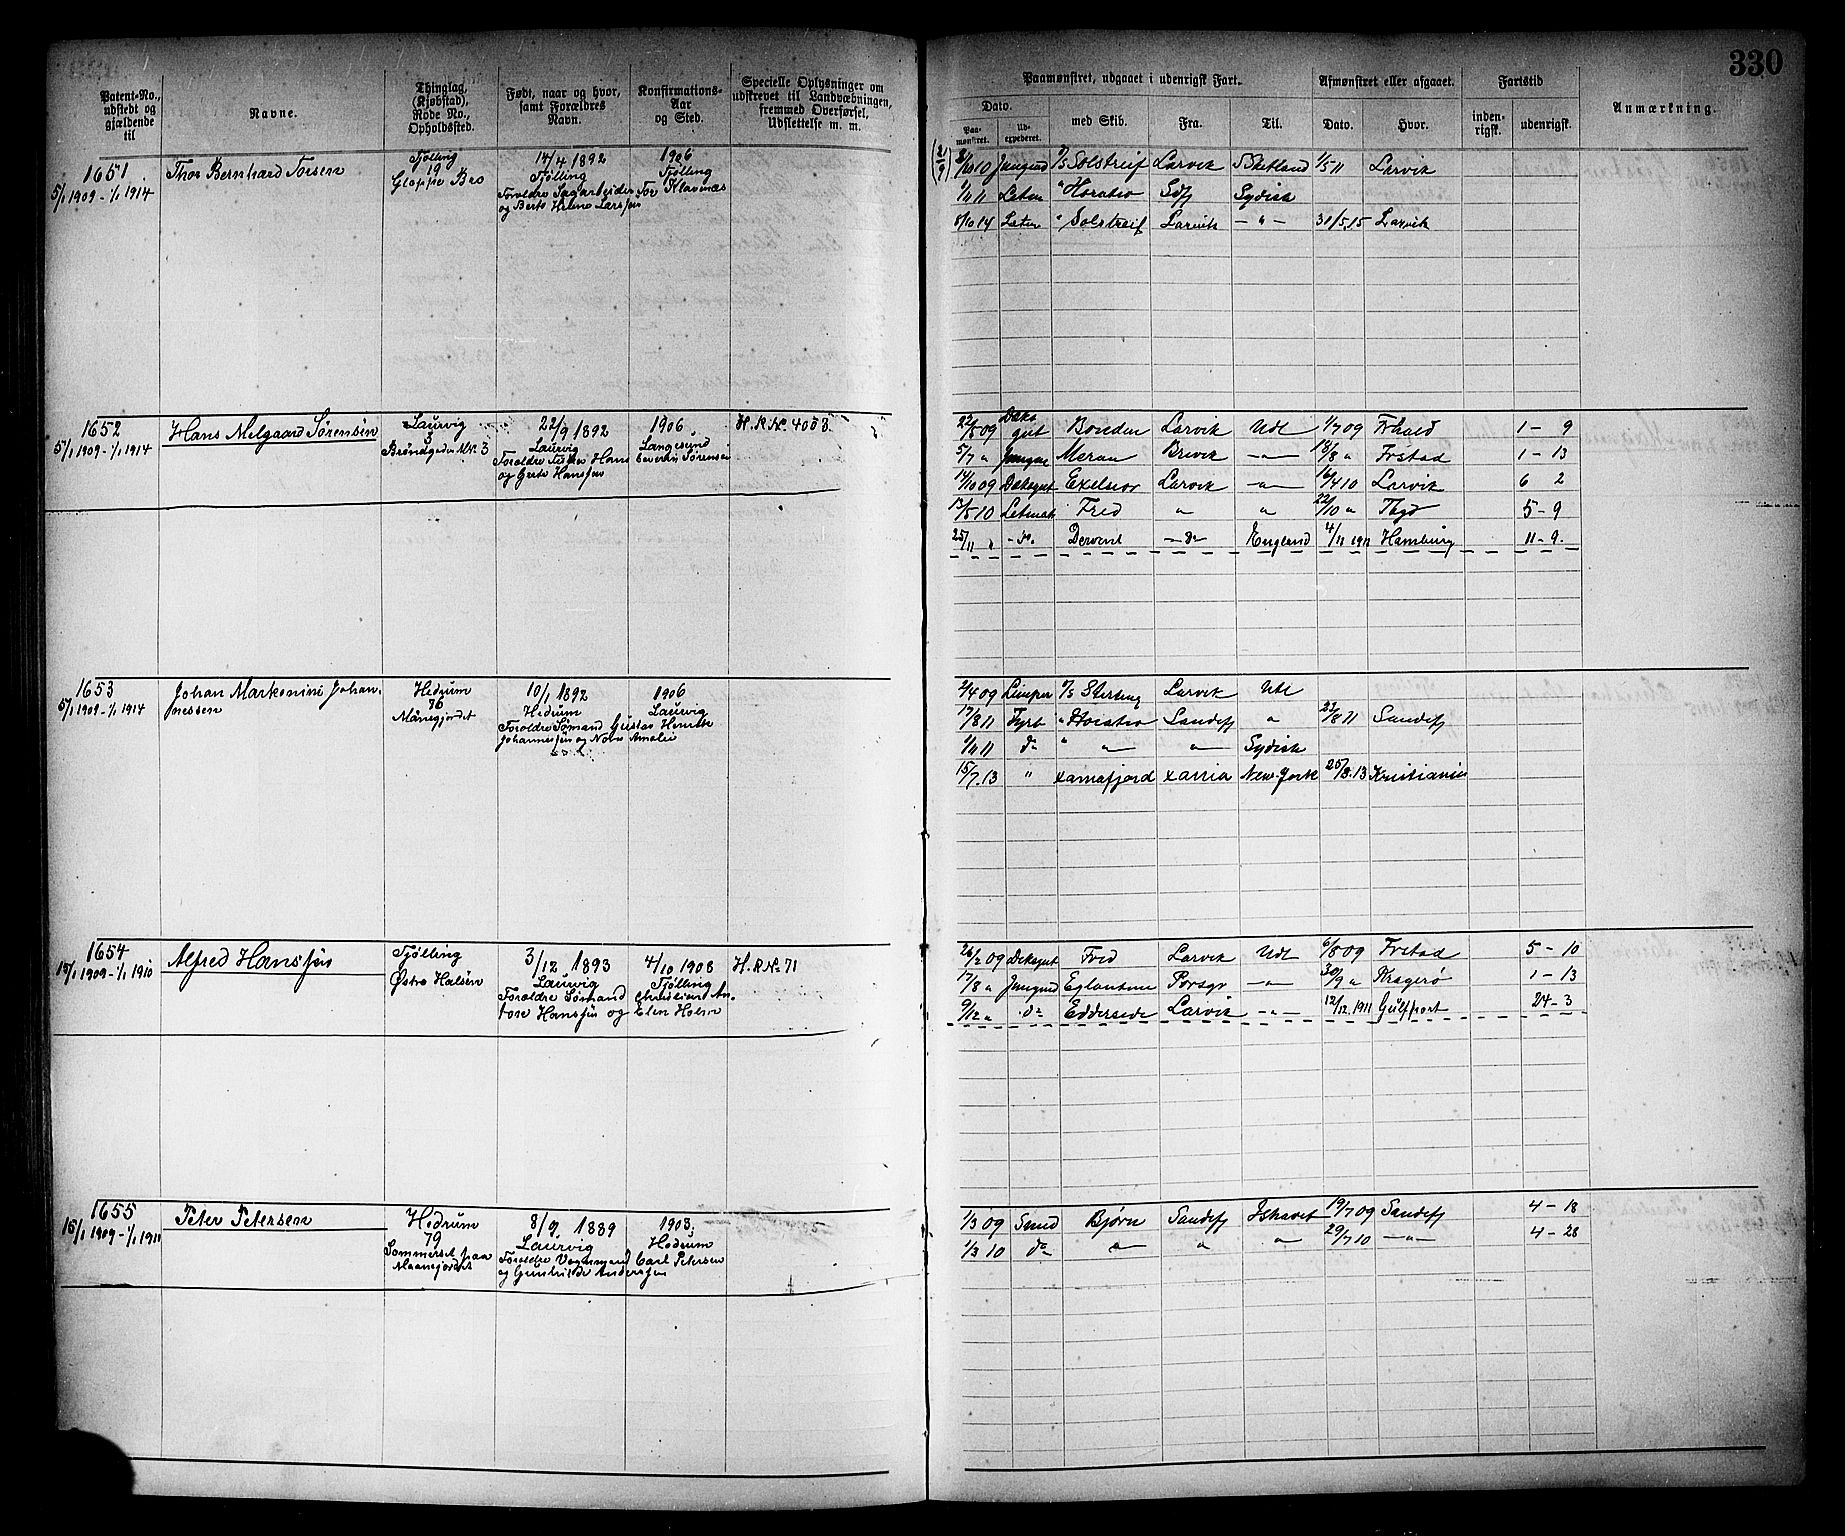 330
Patent-No., udstedt og gjældende til
Navne.
Thinglag, (Kjøbstad), Rode No., Opholdssted.
Født, naar og hvor, samt Forældres Navn.
Konfirmations-Aar og Sted.
Specielle Oplysninger om udskrevet til Landvæbningen, fremmed Overførsel, Udslettelse m. m.
Paamønstret, udgaaet i udenrigsk Fart.
Dato.
Paa-mønstret.
Ud-expederet.
med Skib.
Fra.
Til.
Afmønstret eller afgaaet.
Dato.
Hvor.
Fartstid
inden-rigsk.
udenrigsk.
Anmærkning.
1651
5/1 1909 - 1/1 1914
Thor Bernhard Torsen
Tjølling
19
Gloppe Bro
14/4 1892
Tjølling
Foreldre Sagarbeider Tor Klavenæs
og Berte Helene Larsen
1906
Tjølling
10 Jungmd Solstreif Larvik Shetland 1/5 11 Larvik
11 Letm " Horatio Sdfj Sydish
8/10 14 Letm " Solstreif Larvik — " — 31/5.15 Larvik
1652
5/1 1909 - 1/1 1914
Hans Melgaard Sørensen
Laurvig
3
Brøndgaden Mk. 3
22/9 1892
Laurvig
1906
Langesund
Severin Sørensen
H. R. No 4003.
22/5 09 Dæksgut Bonden Larvik Udl 1/7 09 Fhald 1 - 9
5/7 " Jungm Meran Brevik — " — 18/8 " Frstad 1 - 13
14/10 09 Dæksgut Exelsior Larvik — " — 16/4 10 Larvik 6 2
13/5 10 Letmat Fred " " 22/10 " 5 - 9
25/11 " - do. Dervent — do — England 4/11 1911 Hamburg 11 - 9.
1653
5/1 1909 - 1/1 1914
Johan Markonini Johan-
nessen
Hedrum
76
Månegjordet
10/1 1892
Hedrum
Foreldre Sømand Gustav Henrik
Johannessen og Amalie
1906
Laurvig
2/4 09 Sterling Larvik Udl
17/8 11 Fyrb " Horatio Sandefj " 23/8 11 Sandefj
11 do " " " Sydish
15/7.13 " xarnafjord xarria New York 25/8.13 Kristiania
1654
15/1 1909 - 1/1 1910
Alfred Hansen
Tjølling
Østre Halsen
3/12 1893
Laurvig
Foreldre Sømand Christian An-
tore Hansen og Elen Holm
4/10 1908
Tjølling
H. R. No 71
26/2 09 Dæksgut Fred Larvik Udl 6/8 09 Frstad 5 - 10
17/8 " Jungmd Eglantine Porsgr — " — 30/9 " Kragerø 1 - 13
9/12 " do Edderside Larvik — " — 12/12.1911 Gulfport 24 - 3
1655
15/1 1909 - 1/1 1911
Peter Petersen
Hedrum
79
Sommerset paa
Maanejordet
8/9 1889
Laurvig
Foreldre Vognmand Carl Petersen
og Gunhilde Andersen
1903.
Hedrum
1/3 09 Smed Bjørn Sandefj Ishavet 19/7 09 Sandefj 4 - 18
1/3 10 do " " " 29/7 10 — " — 4 - 28